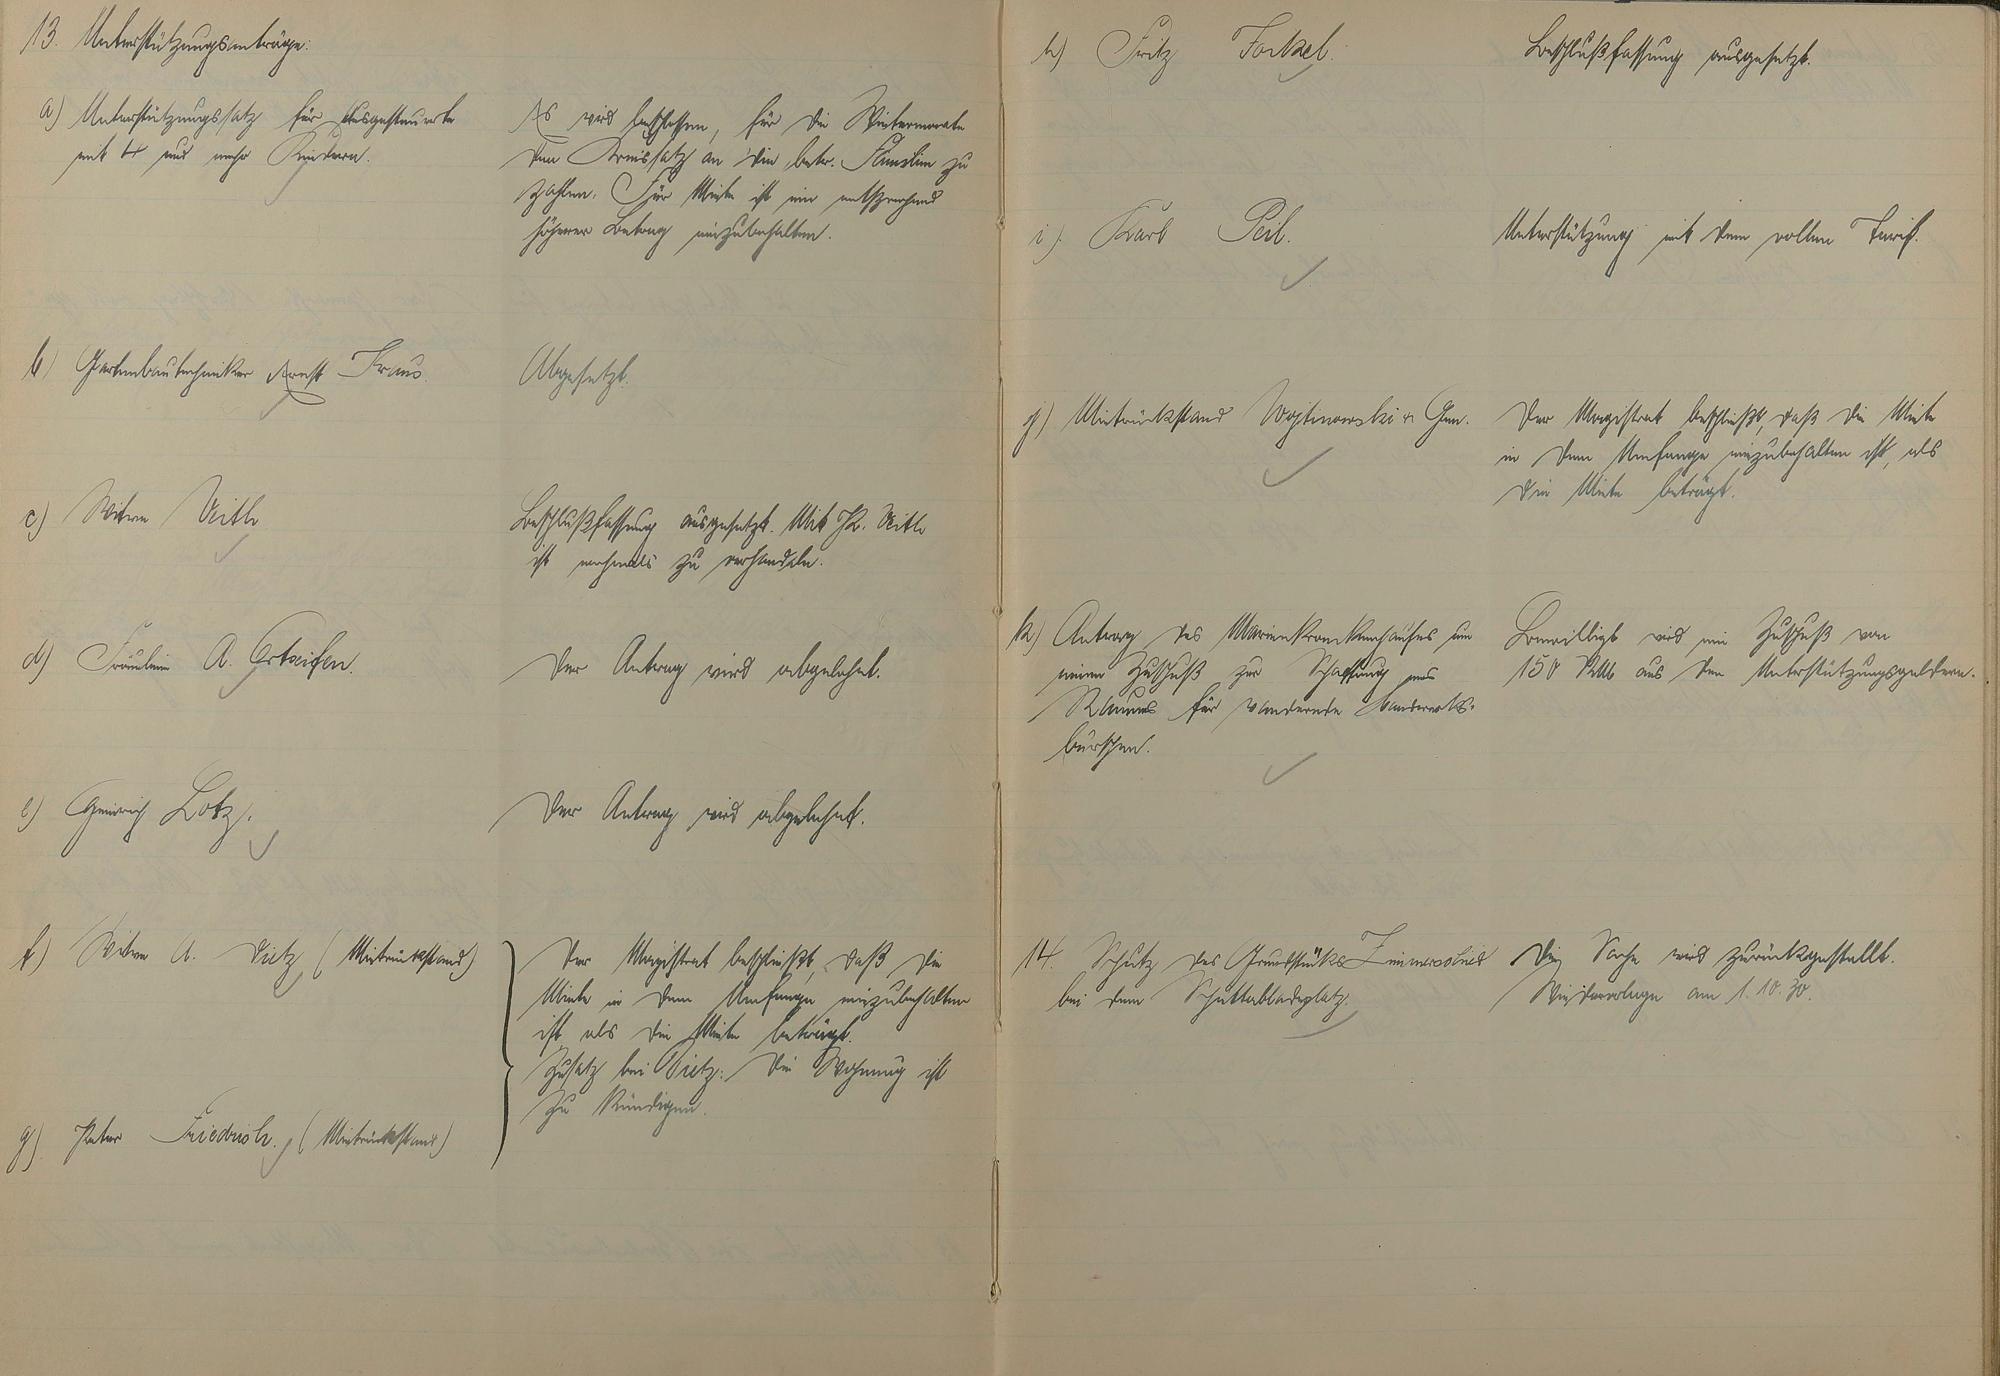 13. Unterstützungsanträge:
a) Unterstützungssatz für Ausgesteuerte
mit 4 und mehr Kindern.
Es wird beschlossen, für die Wintermonate
den Kreissatz an die betr. Familien zu
zahlen. Für Miete ist ein entsprechend
höherer Betrag einzubehalten.
b) Gartenbautechniker Ernst Kraus.
Abgesetzt.
c) Witwe Veith
Beschlußfassung ausgesetzt. Mit Fr. Veith
ist nochmals zu verhandeln.
d) Fräulein A.
Der Antrag wird abgelehnt.
e) Heinrich Lotz.
Der Antrag wird abgelehnt.
f) Witwe A. Dietz (Mietrückstand)
Der Magistrat beschließt, daß die
Miete in dem Umfange einzubehalten
ist, als die Miete beträgt.
Zusatz bei Dietz: Die Wohnung ist
zu kündigen.
g) Peter Friedrich. (Mietrückstand)
h) Fritz
Beschlußfassung ausgesetzt.
i) Karl Peil.
Unterstützung mit dem vollen Tarif.
j) Mietrückstand Wojtinowski u. Gen.
Der Magistrat beschließt, daß die Miete
in dem Umfange einzubehalten ist, als
die Miete beträgt.
k) Antrag des Marienkrankenhauses um
einen Zuschuß zur Schaffung eines
Raumes für wandernde Handwerks-
burschen.
Bewilligt wird ein Zuschuß von
150 RM aus den Unterstützungsgeldern.
14. Schutz des Grundstücks Zimmerschied
bei dem Schuttabladeplatz.
Die Sache wird zurückgestellt.
Wiedervorlage am 1.10.30.